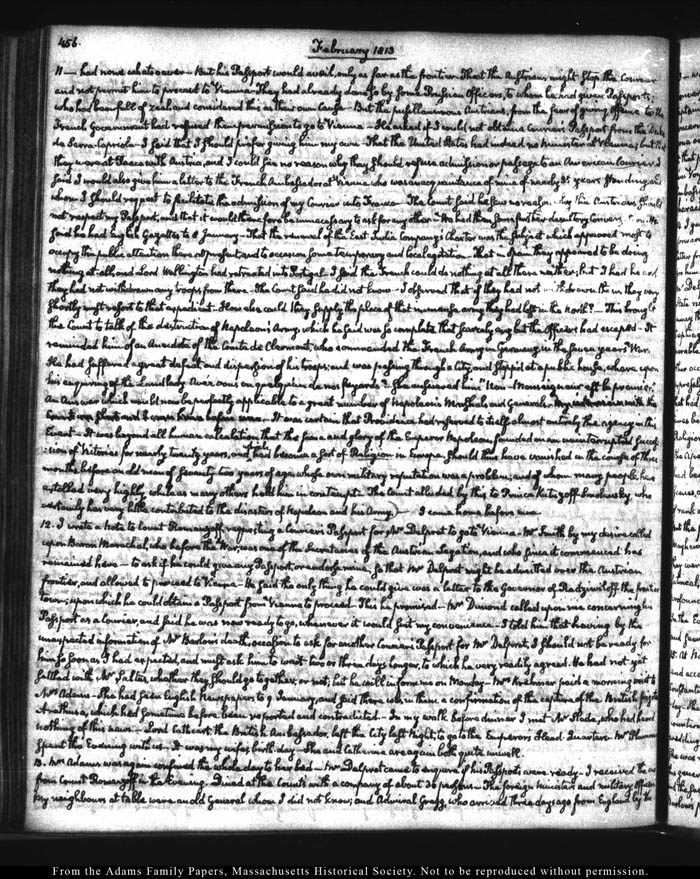 456.
February 1813
11— had none whatsoever— But his Passport would avail, only as far as the frontier. That the Austrians might stop the Courier
and not permit him to proceed to Vienna. They had already done so by some Prussian Officers, to whom he had given Passports;
who had been full of zeal and considered this as their own Cause— But the pusillanimous Austrians, from the fear of giving offence to the
French Government had refused them permission to go to Vienna— He asked if I could not obtain a Courier's Passport from the Duke
de Serra-Capriola— I said that I should prefer giving him my own— That the United States had indeed no Minister at Vienna; but that
they were at Peace with Austria, and I could see no reason why they should refuse admission or passage to an American Courier. I
said I would also give him a letter to the French Ambassador at Vienna who was an acquaintance of mine of nearly 35 years standing and
whom I should request to facilitate the admission of my Courier into France— The Count said he saw no reason why the Austrians should
not respect my Passport, and that it would therefore be unnecessary to ask for any other— We had then some further desultory
said he had English Gazettes to 6 January— That the renewal of the East India Company's Charter was the subject which appeared most to
occupy the public attention there at present and to occasion some temporary and local agitation. That in Spain they appeared to be doing
nothing at all, and Lord Wellington had retreated into Portugal. I said the French could do nothing at all there neither; but I had heard
they had not withdrawn any troops from there. The Count said he did not know— I observed that if they had not withdrawn them, they very
shortly must resort to that expedient— How else could they supply the place of that immense army they had lost in the North?— This brought
the Count to talk of the destruction of Napoleon's Army, which he said was so complete that scarcely any but the Officers had escaped— It
reminded him of an Anecdote of the Comte de Clermont, who commanded the French Army in Germany, in the seven years War.
He had suffered a great defeat and dispersion of his troops; and was passing through a City, and stopp'd at a public house, where upon
his enquiring of the Landlady Avez vous vu quelqu'un de nos fuyards? She answered him "Non— Monseigneur est le premier."
An Answer which would now be perfectly applicable to a great number of Napoleon's Marshals and Generals.
It was certain that Providence had referred to itself almost entirely the agency in this
Event— It was beyond all human calculation that the fame and glory of the Emperor Napoleon, founded on an uninterrupted success
:sion of Victories for nearly twenty years, and had become a sort of Religion in Europe, should thus have vanished in the course of three
months before an old man of seventy two years of age, whose own military reputation was a problem; and of whom many people have
extolled very highly while as many others held him in contempt. The Count alluded by this to Prince Kutuzoff-Smolensky, who
certainly has very little contributed to the disasters of Napoleon and his Army.)— I came home before nine.
12. I wrote a Note to Count Romanzoff, requesting a Courier's Passport for Mr Delprat to go to Vienna— Mr Smith by my desire called
upon Baron Marechal, who before the War, was one of the Secretaries of the Austrian Legation, and who since it commenced has
remained here— to ask if he could give any Passport, or endorsement, so that Mr Delprat might be admitted over the Austrian
frontier, and allowed to proceed to Vienna— He said the only thing he could give was a letter to the Governor of Radziwiloff the frontier
town; upon which he could obtain a Passport from Vienna to proceed. This he promised— Mr Dimond called upon me concerning his
Passport as a Courier, and said he was now ready to go, whenever it would suit my convenience— I told him that having by the
unexpected information of Mr Barlow's death, occasion to ask for another Courier's Passport for Mr Delprat, I should not be ready for
him so soon as I had expected, and must ask him to wait two or three days longer, to which he very readily agreed. He had not yet
settled with Mr Salter, whether they should go together, or not; but he will inform me on Monday— Mrs Krehmer paid a morning visit to
Mrs Adams— She had seen English Newspapers to 9 January, and said there was in them a confirmation of the capture of the British frigate
Arethusa, which had sometime before been reported and contradicted— In my walk before dinner I met Mr Slade, who had heard
nothing of this news— Lord Cathcart the British Ambassador, left the City last Night, to go to the Emperor's Head-Quarters— Mr
spent the Evening with us— It was my wife's birth-day— She and Catherine are again both quite unwell.
13. Mrs Adams was again confined the whole day to her bed— Mr Delprat came to enquire if his Passports were ready— I received the one
from Count Romanzoff in the Evening. Dined at the Count's with a company of about 36 persons— The foreign Ministers and military officers
my neighbours at table were an old General whom I did not know; and Admiral Gregg, who arrived three days ago from England by the
From the Adams Family Papers, Massachusetts Historical Society. Not to be reproduced without permission.